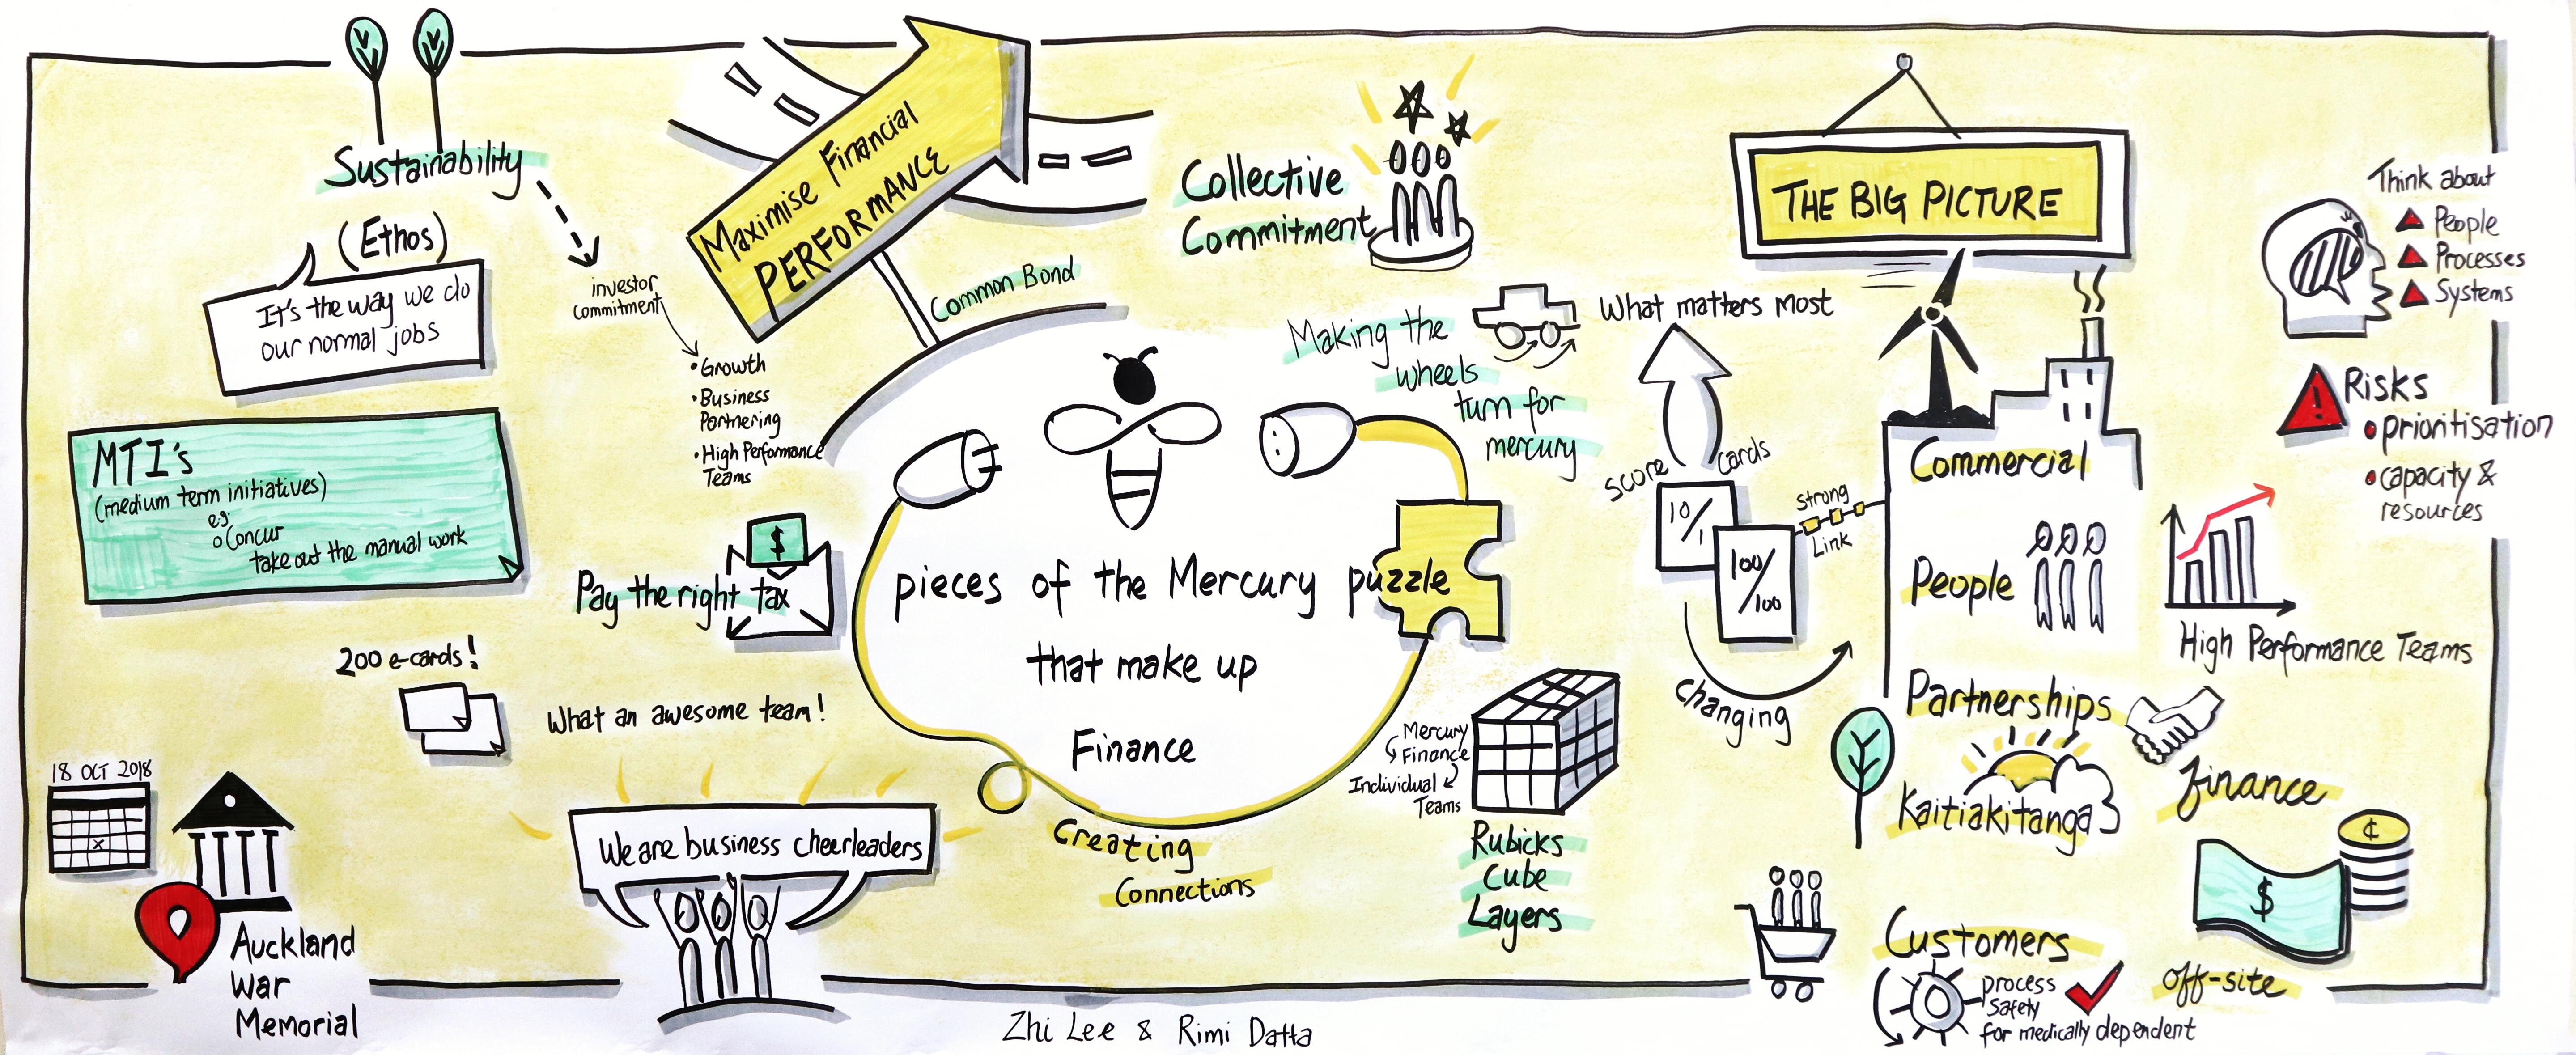 Sustainability
(Ethos)
It's the way we do
our normal jobs
MTI's
(medium term initiatives)
eg:
o Concur
take out the manual work
200 e-cards!
What an awesome team!
18 OCT 2018
x
Auckland
War
Memorial
Maximise Financial
PERFORMANCE
investor
commitment
• Growth
• Business
Partnering
• High Performance
Teams
Common Bond
$
Pay the right tax
We are business cheerleaders
Collective
Commitment
Making the
wheels
turn for
mercury
pieces of the Mercury puzzle
that make up
Finance
Creating
Connections
Mercury
Finance
Individual
Teams
Rubicks
Cube
Layers
Zhi Lee & Rimi Datta
THE BIG PICTURE
What matters most
score cards
10/1
100/100
strong
Link
changing
Commercial
People
Partnerships
Kaitiakitanga
Customers
process
Safety
for medically dependent
Think about
People
Processes
Systems
!
Risks
• prioritisation
• capacity &
resources
High Performance Teams
finance
¢
$
off-site